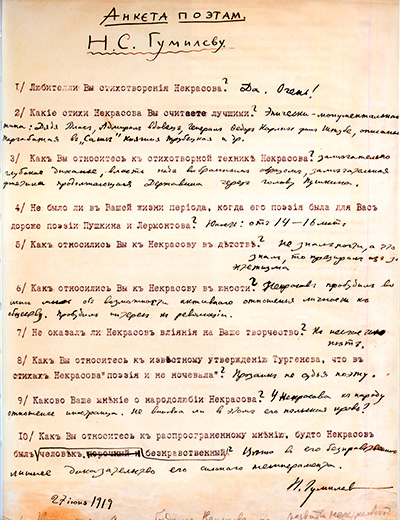 Анкета поэтам.
Н.С. Гумилеву.
1/ Любители Вы стихотворенія Некрасова? Да. Очень!
2/ Какіе стихи Некрасова Вы считаете лучшими? Эпически-монументальнаго
типа: Дядя Влас, Адмирал вдовец, Генерал Федор Карлыч фон Штубе, описание
Тарбагатая в „Саше“, Княгиня Трубецкая и др.
3/ Какъ Вы относитесь къ стихотворной техникѣ Некрасова? Замечательно
глубокое дыханье, власть над выбранным образом, замечательная
фонетика, продолжающая Державина через голову Пушкина.
4/ Не было ли въ Вашей жизни періода, когда его поэзія была для Васъ
дороже поэзіи Пушкина и Лермонтова? Юность: отъ 14–16 летъ
5/ Какъ относились Вы къ Некрасову въ дѣтствѣ? Не знал почти, а что
знал, то презирал из-за эстетизма
6/ Какъ относились Вы къ Некрасову въ юности? Некрасов пробудил во
мне мысль о возможности активнаго отношения личности къ
обществу. Пробудил интерес къ революціи.
7/ Не оказалъ ли Некрасовъ вліянія на Ваше творчество? К несчастью
нетъ.
8/ Какъ Вы относитесь къ извѣстному утвержденію Тургенева, что въ
стихахъ Некрасова "поэзія и не ночевала"? Прозаик не судья поэту.
9/ Каково Ваше мнѣніе о народолюбіи Некрасова? У Некрасова къ народу
отношение иностранца. Не виновата ли в этом его польская кровь?
10/ Какъ Вы относитесь къ распространенному мнѣнію, будто Некрасовъ
былъ человѣкъ порочный и безнравственный? Ценю в его безнравственности
лишнее доказательство его сильнаго темперамента.
27 іюня 1919
Н. Гумилев